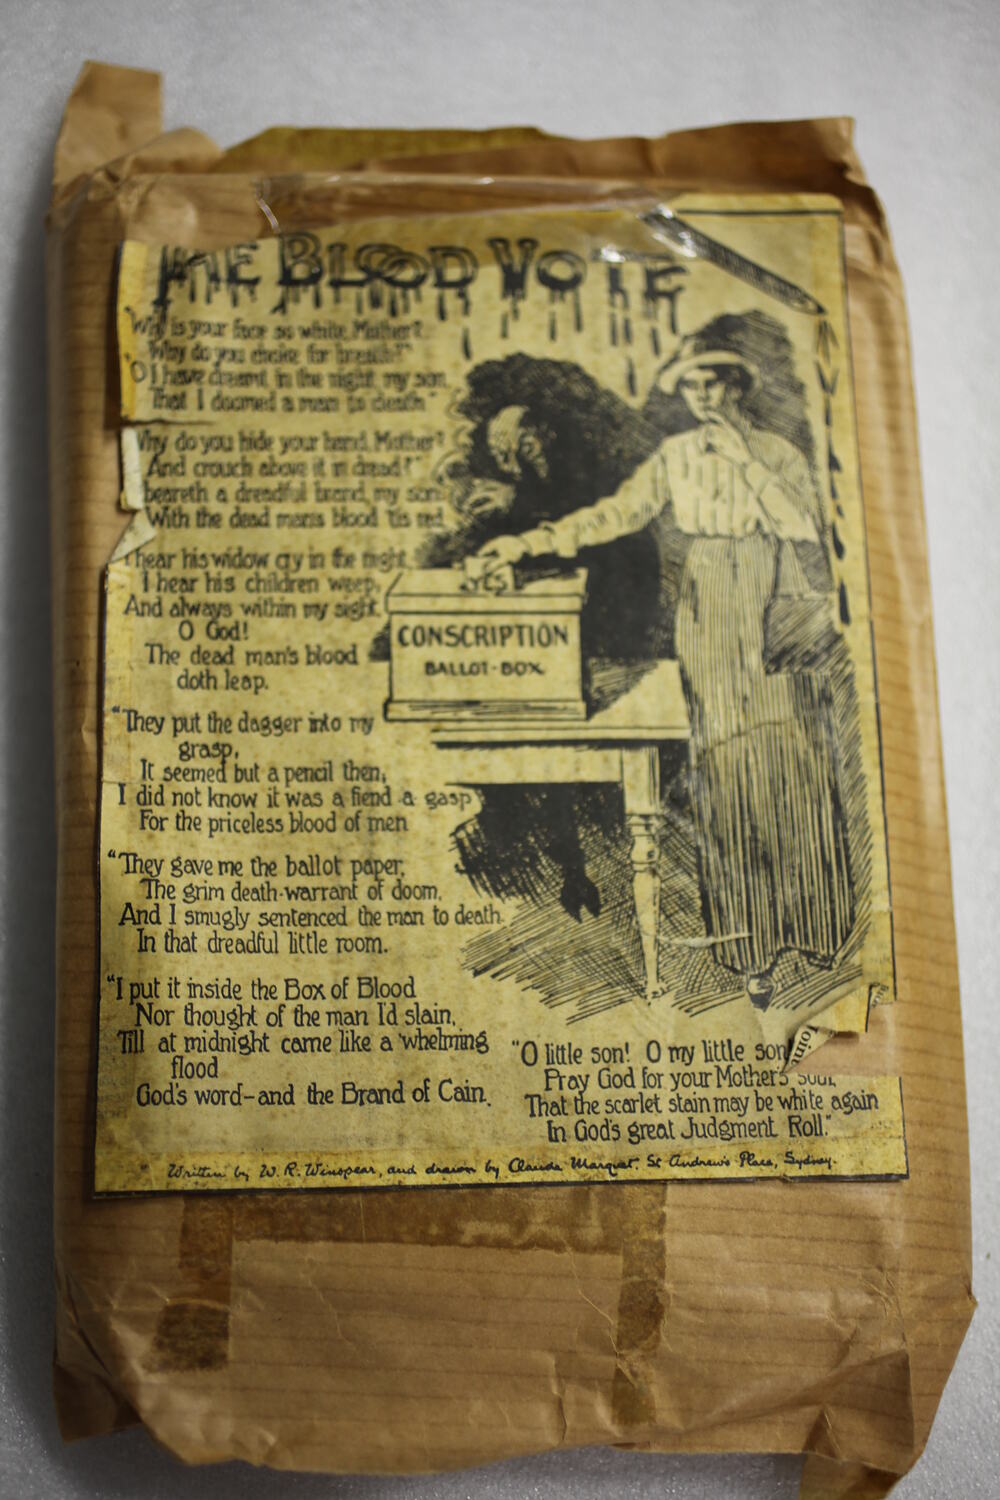 THE BLOOD VOTE
"Why is your face so white, Mother?
Why do you choke for breath?"
"O I have dreamt in the night, my son,
That I doomed a man to death"
Why do you hide your hand, Mother?
And crouch above it in dread?"
beareth a dreadful brand, my son
With the dead man's blood 'tis red
I hear his widow cry in the night,
I hear his children weep,
And always within my sight,
O God!
The dead man's blood
doth leap.
"They put the dagger into my
grasp,
It seemed but a pencil then,
I did not know it was a fiend a-gasp
For the priceless blood of men
"They gave me the ballot paper,
The grim death-warrant of doom,
And I smugly sentenced the man to death
In that dreadful little room.
"I put it inside the Box of Blood
Nor thought of the man I'd slain,
Till at midnight came like a 'whelming
flood
God's word—and the Brand of Cain.
"O little son! O my little son
Pray God for your Mother's soul,
That the scarlet stain may be white again
In God's great Judgment Roll."
YES
CONSCRIPTION
BALLOT-BOX
Joint
Written by W. R. Winspear, and drawn by Claude Marquet. St Andrew's Place, Sydney.